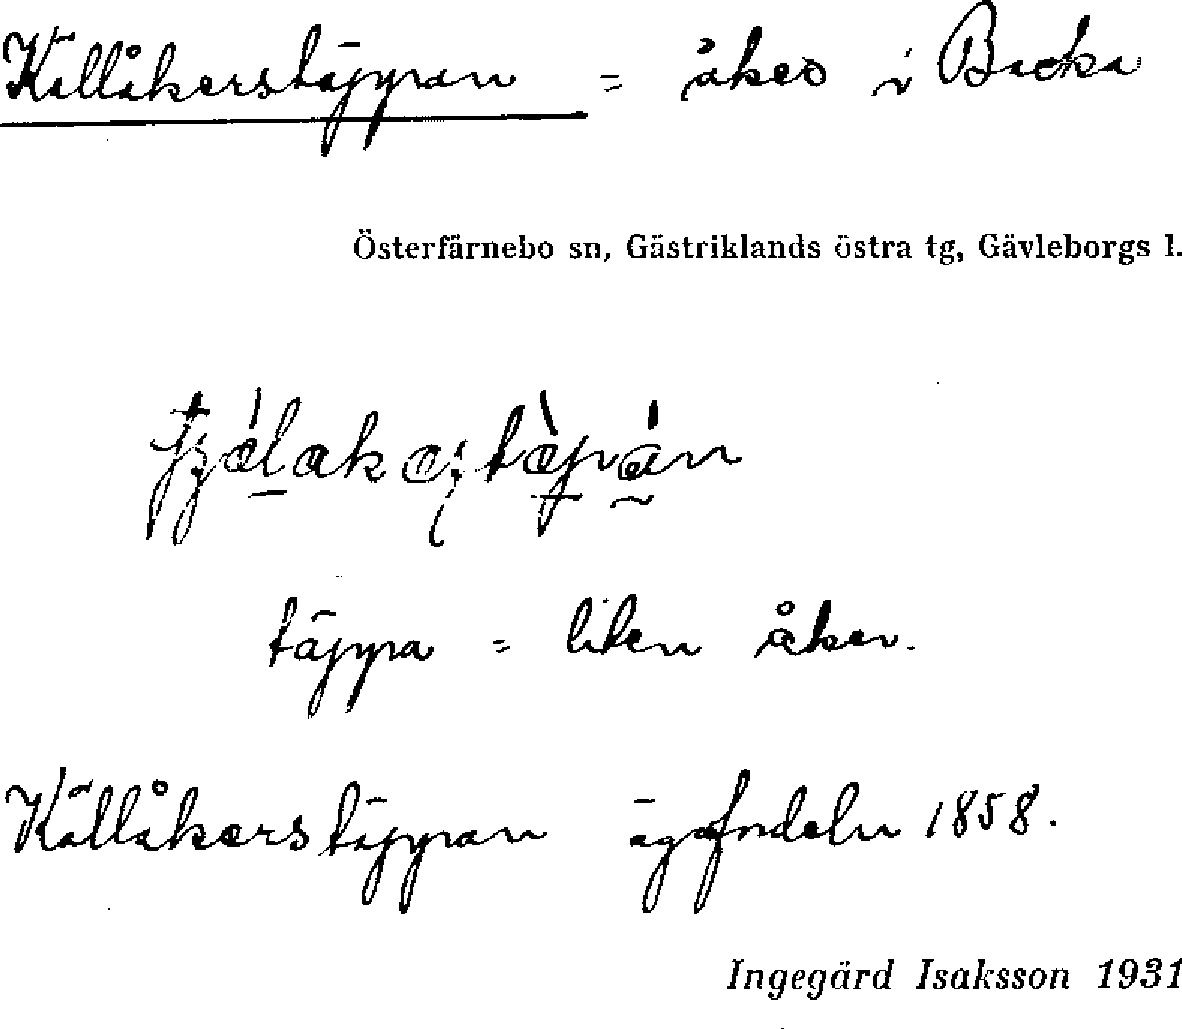 Källåkerstäppan = åker i Backa
Österfärnebo sn, Gästriklands östra tg, Gävleborgs l.
täppa = liten åker.
Källåkerstäppan ägofndeln 1858.
Ingegärd Isaksson 1931